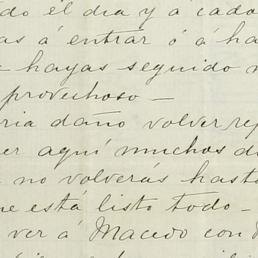 do él dia y á cado
as á entrár ó á ha
hayas seguido
provechoso —
ria daño volver re
er aquí muchos di
no volverás hasta
e está listo todo —
ver á Macedo con